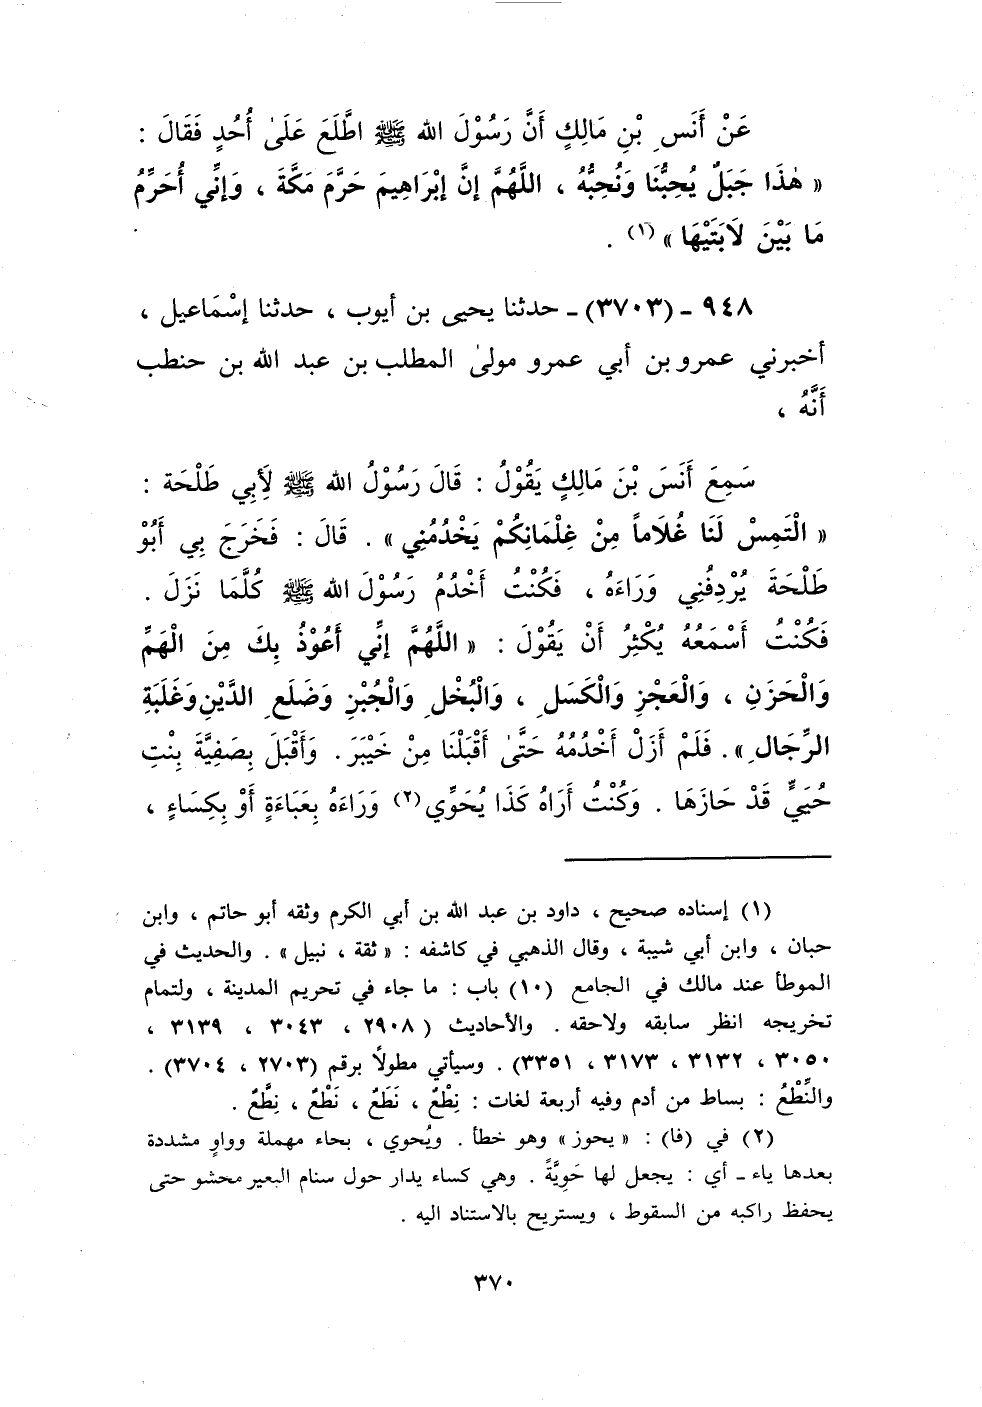 عَنْ أَنَسِ بْنِ مَالِكٍ أَنَّ رَسُوْلَ الله ﷺ اطَّلَعَ عَلَىٰ أُحُدٍ فَقَالَ :
« هٰذَا جَبَلٌ يُحِبُّنَا وَنُحِبُّهُ ، اللَّهُمَّ إِنَّ إِبْرَاهِيمَ حَرَّمَ مَكَّةَ ، وَإِنِّي أُحَرِّمُ
مَا بَيْنَ لَابَتَيْهَا » (١) .
٩٤٨ - (٣٧٠٣) - حدثنا يحيى بن أيوب ، حدثنا إسْمَاعيل ،
أخبرني عمرو بن أبي عمرو مولىٰ المطلب بن عبد الله بن حنطب
أَنَّهُ ،
سَمِعَ أَنَسَ بْنَ مَالِكٍ يَقُوْلُ : قَالَ رَسُوْلُ الله ﷺ لِأَبِي طَلْحَة :
« الْتَمِسْ لَنَا غُلَاماً مِنْ غِلْمَانِكُمْ يَخْدُمُنِي » . قَالَ : فَخَرَجَ بِي أَبُوْ
طَلْحَةَ يُرْدِفُنِي وَرَاءَهُ ، فَكُنْتُ أَخْدُمُ رَسُوْلَ الله ﷺ كُلَّمَا نَزَلَ .
فَكُنْتُ أَسْمَعُهُ يُكْثِرُ أَنْ يَقُوْلَ : « اللَّهُمَّ إِنِّي أَعُوْذُ بِكَ مِنَ الْهَمِّ
وَالْحَزَنِ ، وَالْعَجْزِ وَالْكَسَلِ ، وَالْبُخْلِ وَالْجُبْنِ وَضَلَعِ الدَّيْنِ وَغَلَبَةِ
الرِّجَالِ » . فَلَمْ أَزَلْ أَخْدُمُهُ حَتَّىٰ أَقْبَلْنَا مِنْ خَيْبَرَ . وَأَقْبَلَ بِصَفِيَّةَ بِنْتِ
حُيَيٍّ قَدْ حَازَهَا . وَكُنْتُ أَرَاهُ كَذَا يُحَوِّي (٢) وَرَاءَهُ بِعَبَاءَةٍ أَوْ بِكِسَاءٍ ،
(١) إسناده صحيح ، داود بن عبد الله بن أبي الكرم وثقه أبو حاتم ، وابن
حبان ، وابن أبي شيبة ، وقال الذهبي في كاشفه : « ثقة ، نبيل » . والحديث في
الموطأ عند مالك في الجامع (١٠) باب : ما جاء في تحريم المدينة ، ولتمام
تخريجه انظر سابقه ولاحقه . والأحاديث ( ٢٩٠٨ ، ٣٠٤٣ ، ٣١٣٩ ،
٣٠٥٠ ، ٣١٣٢ ، ٣١٧٣ ، ٣٣٥١) . وسيأتي مطولًا برقم (٢٧٠٣ ، ٣٧٠٤) .
والنِّطْعُ : بساط من أدم وفيه أربعة لغات : نِطْعٌ ، نَطَعٌ ، نَطْعٌ ، نِطَعٌ .
(٢) في (فا) : « يحوز » وهو خطأ . ويُحوي ، بحاء مهملة وواوٍ مشددة
بعدها ياء - أي : يجعل لها حَوِيَّةً . وهي كساء يدار حول سنام البعير محشو حتى
يحفظ راكبه من السقوط ، ويستريح بالاستناد اليه .
٣٧٠